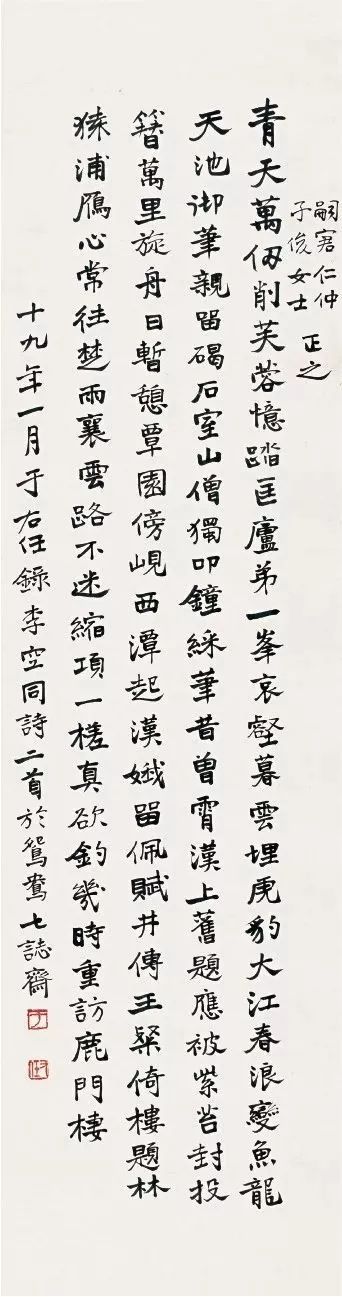 嗣窘仁仲
子俊女士 正之
青天萬仞削芙蓉憶踏匡廬第一峯哀壑暮雲埋虎豹大江春浪變魚龍
天池御筆親留碣石室山僧獨叩鐘綵筆昔曾霄漢上舊題應被紫苔封投
簪萬里旋舟日暫憩覃園傍峴西潭起漢娥留佩賦井傳王粲倚樓題林
猿浦鴈心常往楚雨襄雲路不迷縮項一槎真欲釣幾時重訪鹿門棲
十九年一月于右任錄李空同詩二首於鴛鴦七誌齋